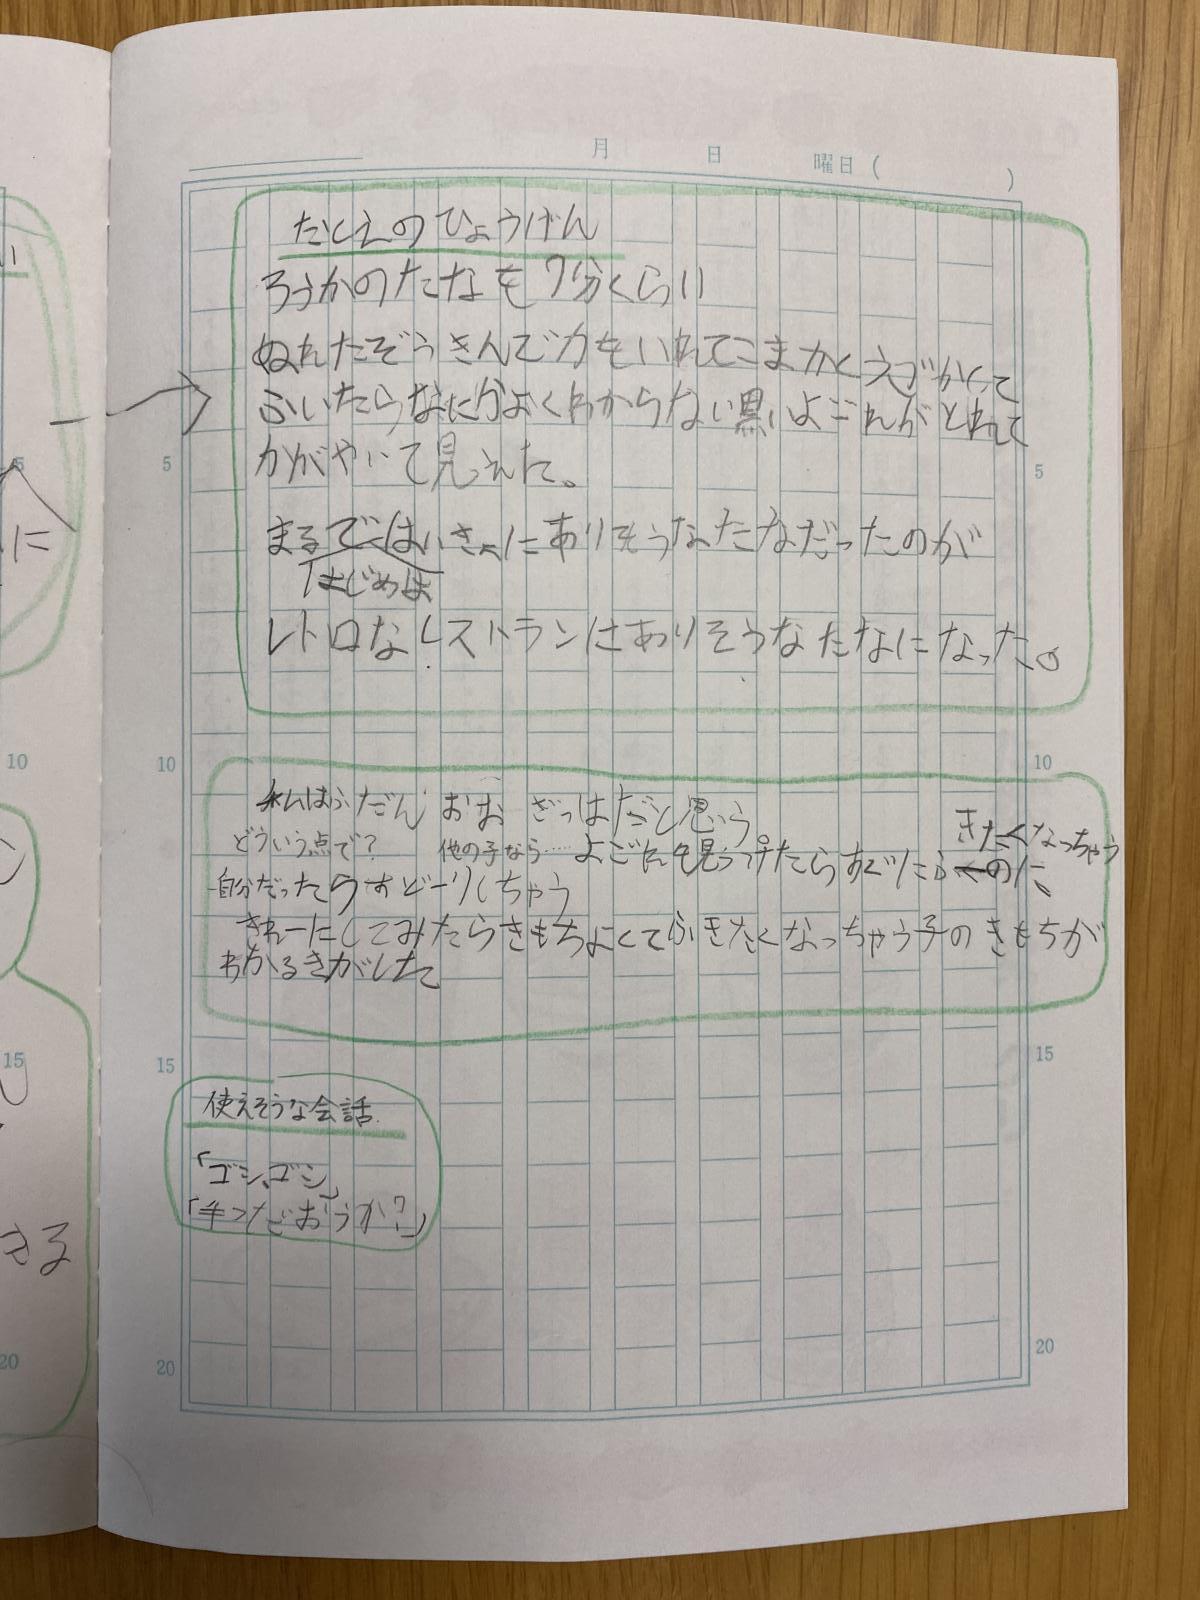 月 日 曜日 ( )
たとえのひょうげん
ろうかのたなも7分くらい
ぬれたぞうきんで力もいれてこまかく
ふいたらなにかよくわからない黒いよごれがとれて
かがやいて見えた。
まるではいきょにありそうなたなだったのが
はじめは
レトロなレストランにありそうなたなになった。
私はふだん おお ざっぱだと思う
きたくなっちゃう
どういう点で? 他の子なら…… よごれを見つけたらすぐにふくのに
自分だったらすどーりしちゃう
きれーにしてみたらきもちよくてふきたくなっちゃう子のきもちが
わかるきがした
使えそうな会話
「ゴシ、ゴシ」
「手つだおうか?」
に
きる
5
10
15
20
5
10
15
20
5
10
15
20